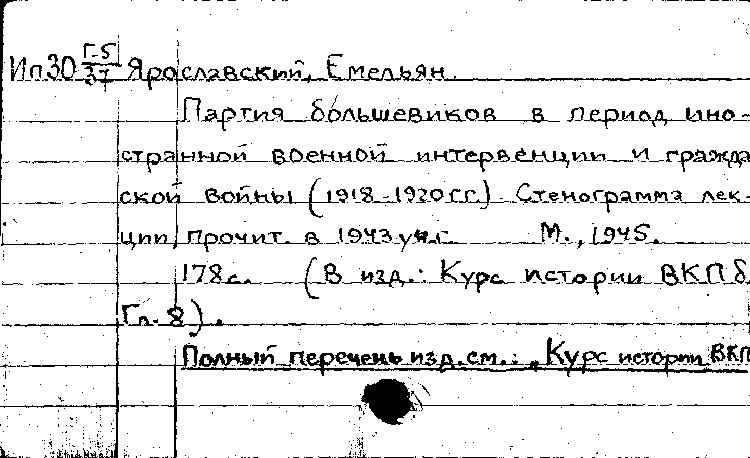 Ип30 Г-5/37 Ярославский, Емельян.
Партия большевиков в период ино-
странной военной интервенции и гражда
ской войны (1918-1920 г.г.) Стенограмма лек-
ции, прочит. в 1943 г. М., 1945.
178 с. (В изд.: Курс истории ВКП б
Гл. 8).
Полный перечень изд. см.: „Курс истории ВКП